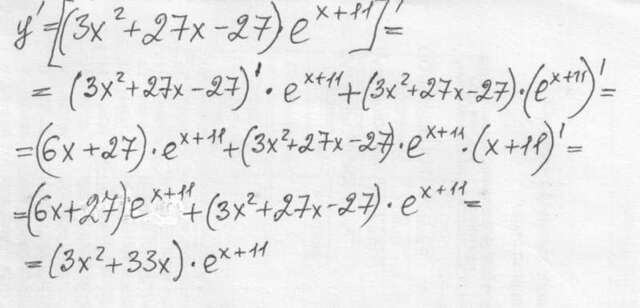 y' = [(3x² + 27x − 27) e^{x+11}]' =
= (3x² + 27x − 27)' · e^{x+11} + (3x² + 27x − 27) · (e^{x+11})' =
= (6x + 27) · e^{x+11} + (3x² + 27x − 27) · e^{x+11} · (x + 11)' =
= (6x + 27) e^{x+11} + (3x² + 27x − 27) · e^{x+11} =
= (3x² + 33x) · e^{x+11}